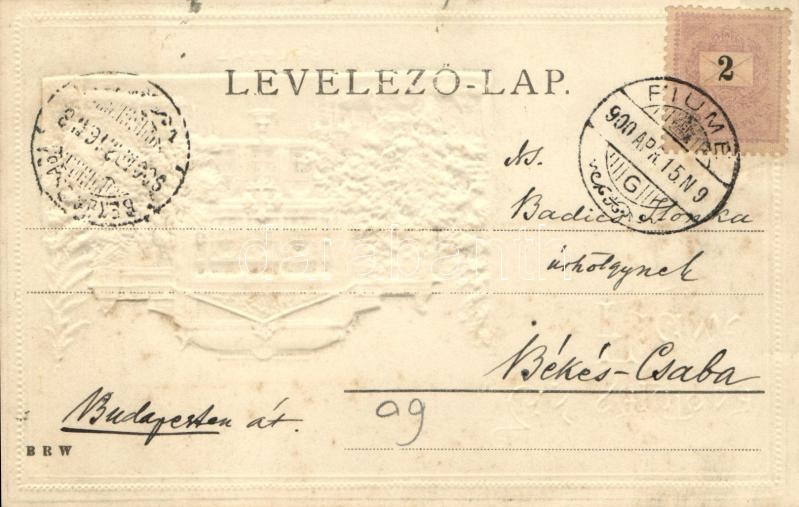 LEVELEZŐ-LAP.
2
FIUME
900 APR. 15. N 9
G
Ns.
Badics Ilonka
úrhölgynek
Békés-Csaba
Budapesten át.
09
BRW
darabanth